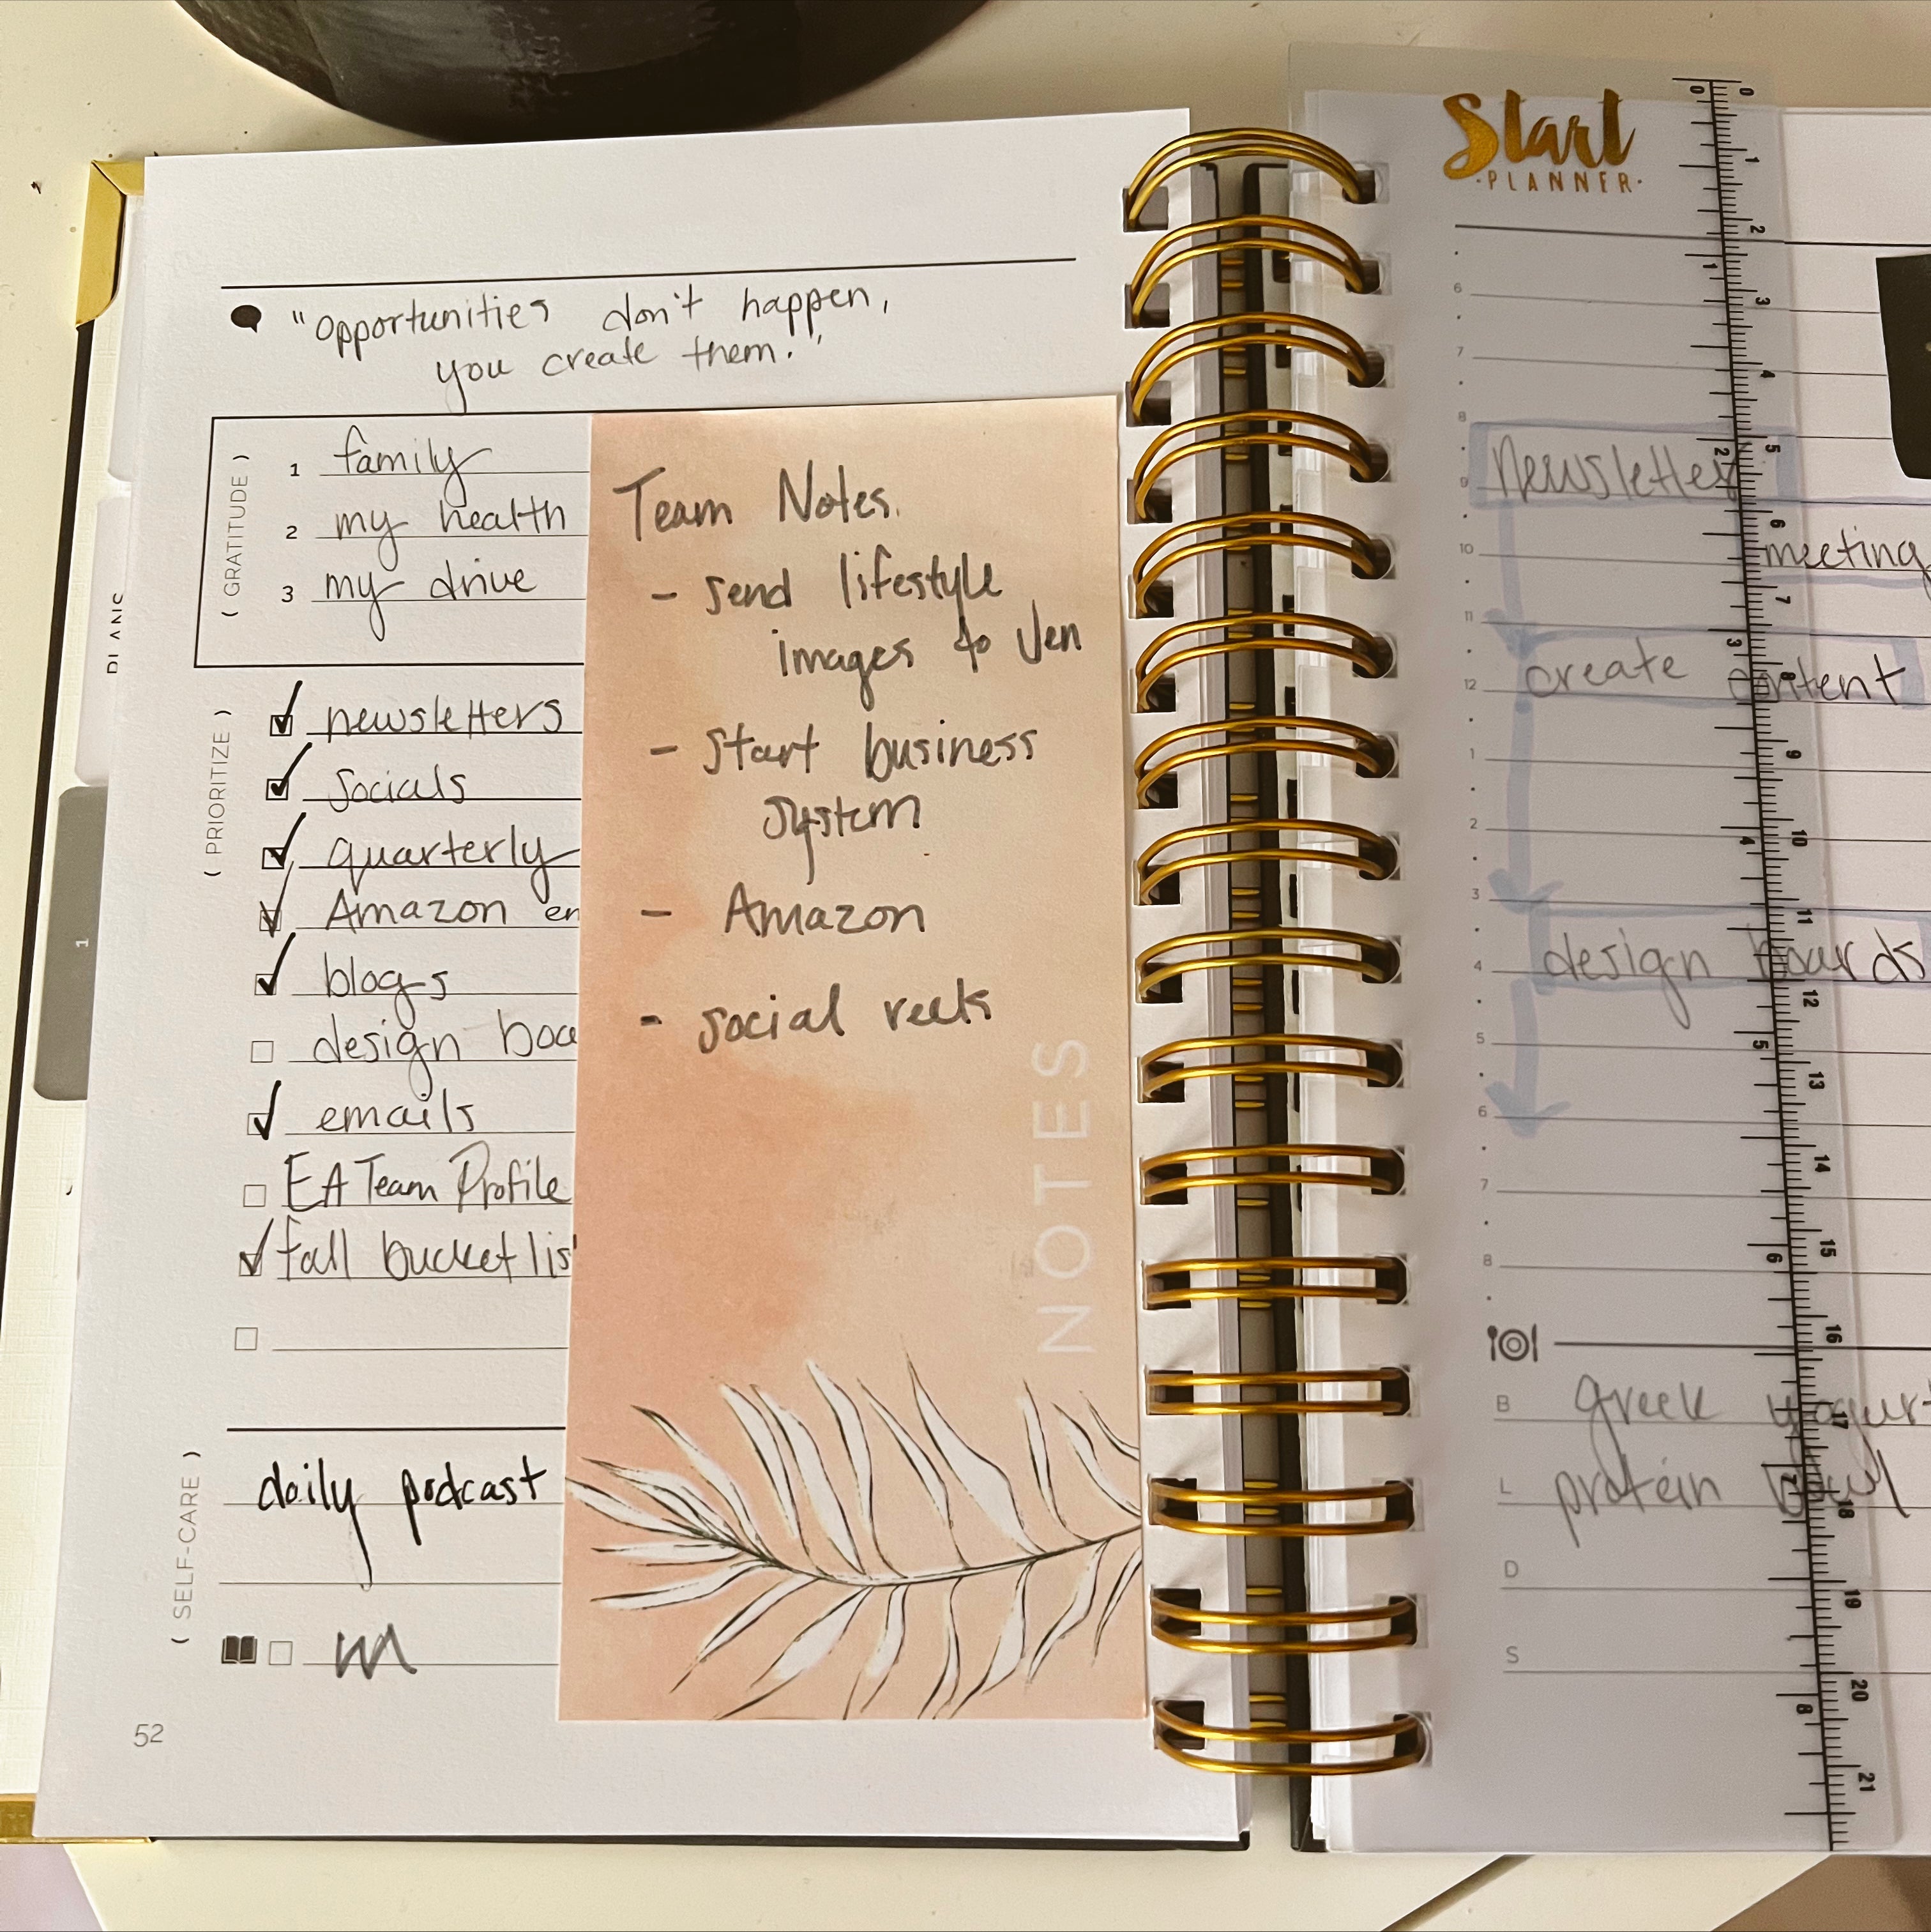 "Opportunities don't happen,
you create them."
( GRATITUDE )
1 family
2 my health
3 my drive
( PRIORITIZE )
newsletters
socials
quarterly
Amazon en
blogs
design boa
emails
EA Team Profile
fall bucket lis
( SELF-CARE )
daily podcast
52
1
Team Notes.
- send lifestyle
images to Jen
- start business
system
- Amazon
- social reels
NOTES
Start
·PLANNER·
6
7
8
newsletter
9
10 meeting
11
12 create content
1
2
3
4 design boards
5
6
7
8
B greek yogurt
L protein bowl
D
S
0
1
2
3
4
5
6
7
8
9
10
11
12
13
14
15
16
17
18
19
20
21
0
1
2
3
4
5
6
7
8